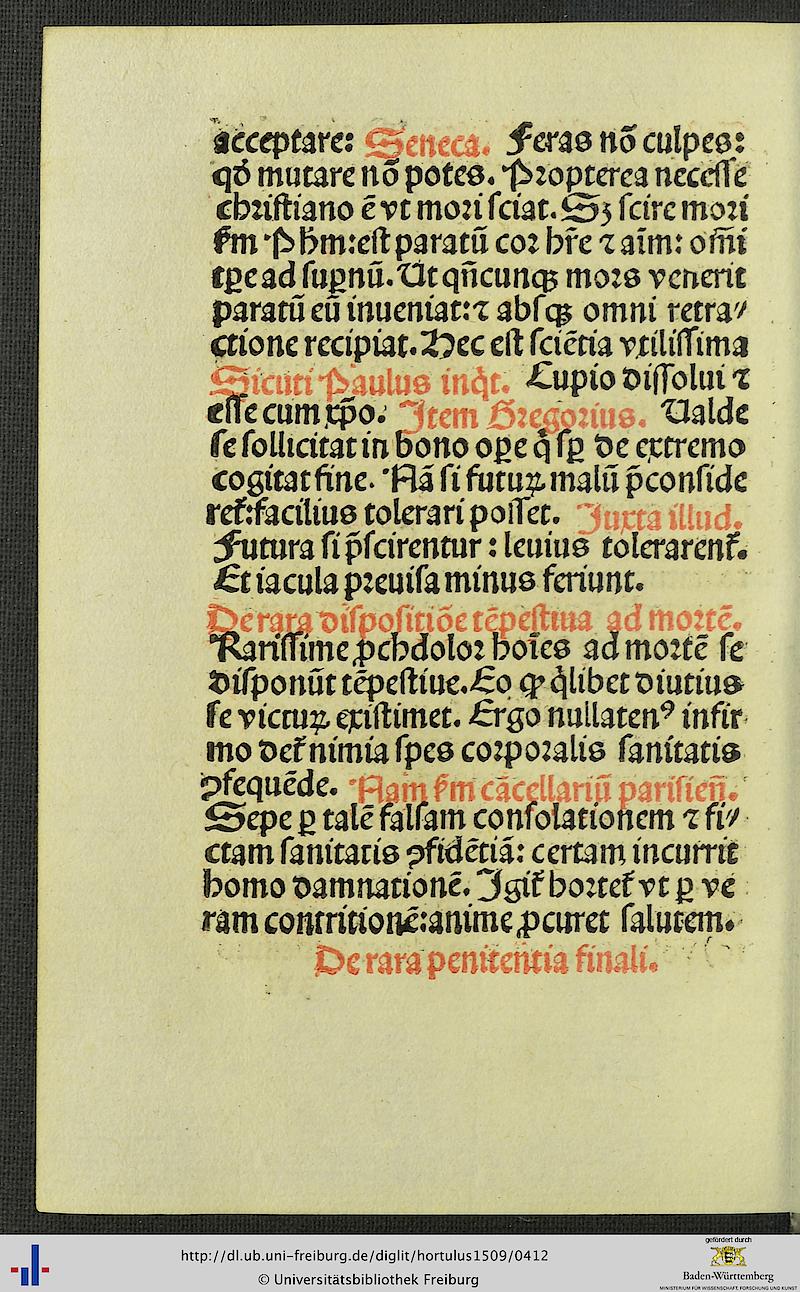 acceptare: Seneca. Feras nō culpes:
qđ mutare nō potes. Propterea necesse
christiano ē vt mori sciat. Sꝫ scire mori
s̄m P hm̄: est paratū cor hr̄e ⁊ aīm: om̄i
tꝑe ad suꝑnū. Ut qn̄cunqꝫ mors venerit
paratū eū inueniat: ⁊ absqꝫ omni retra⸗
ctione recipiat. Hec est sciētia vtilissima
Sicuti Paulus inq̇t. Cupio dissolui ⁊
esse cum xp̄o. Item Gregorius. Ualde
se sollicitat in bono oꝑe q̇ sꝑ de extremo
cogitat fine. Nā si futuꝝ malū p̄conside
ret̄: facilius tolerari posset. Juxta illud.
Futura si p̄scirentur: leuius tolerarent̄.
Et iacula preuisa minus feriunt.
De rara dispositiōe tēpestiua ad mortē.
Rarissime ꝓchdolor hoīes ad mortē se
disponūt tēpestiue. Eo ꝙ q̇libet diutius
se victuꝝ existimet. Ergo nullatenꝰ infir
mo det̄ nimia spes corporalis sanitatis
ꝯsequēde. Nam s̄m cācellariū parisien̄.
Sepe ꝑ talē falsam consolationem ⁊ fi⸗
ctam sanitatis ꝯfidētiā: certam incurrit
homo damnationē. Igit̄ hortet̄ vt ꝑ ve
ram contritionē: anime ꝓcuret salutem.
De rara penitentia finali.
http://dl.ub.uni-freiburg.de/diglit/hortulus1509/0412
© Universitätsbibliothek Freiburg
gefördert durch
Baden-Württemberg
MINISTERIUM FÜR WISSENSCHAFT, FORSCHUNG UND KUNST